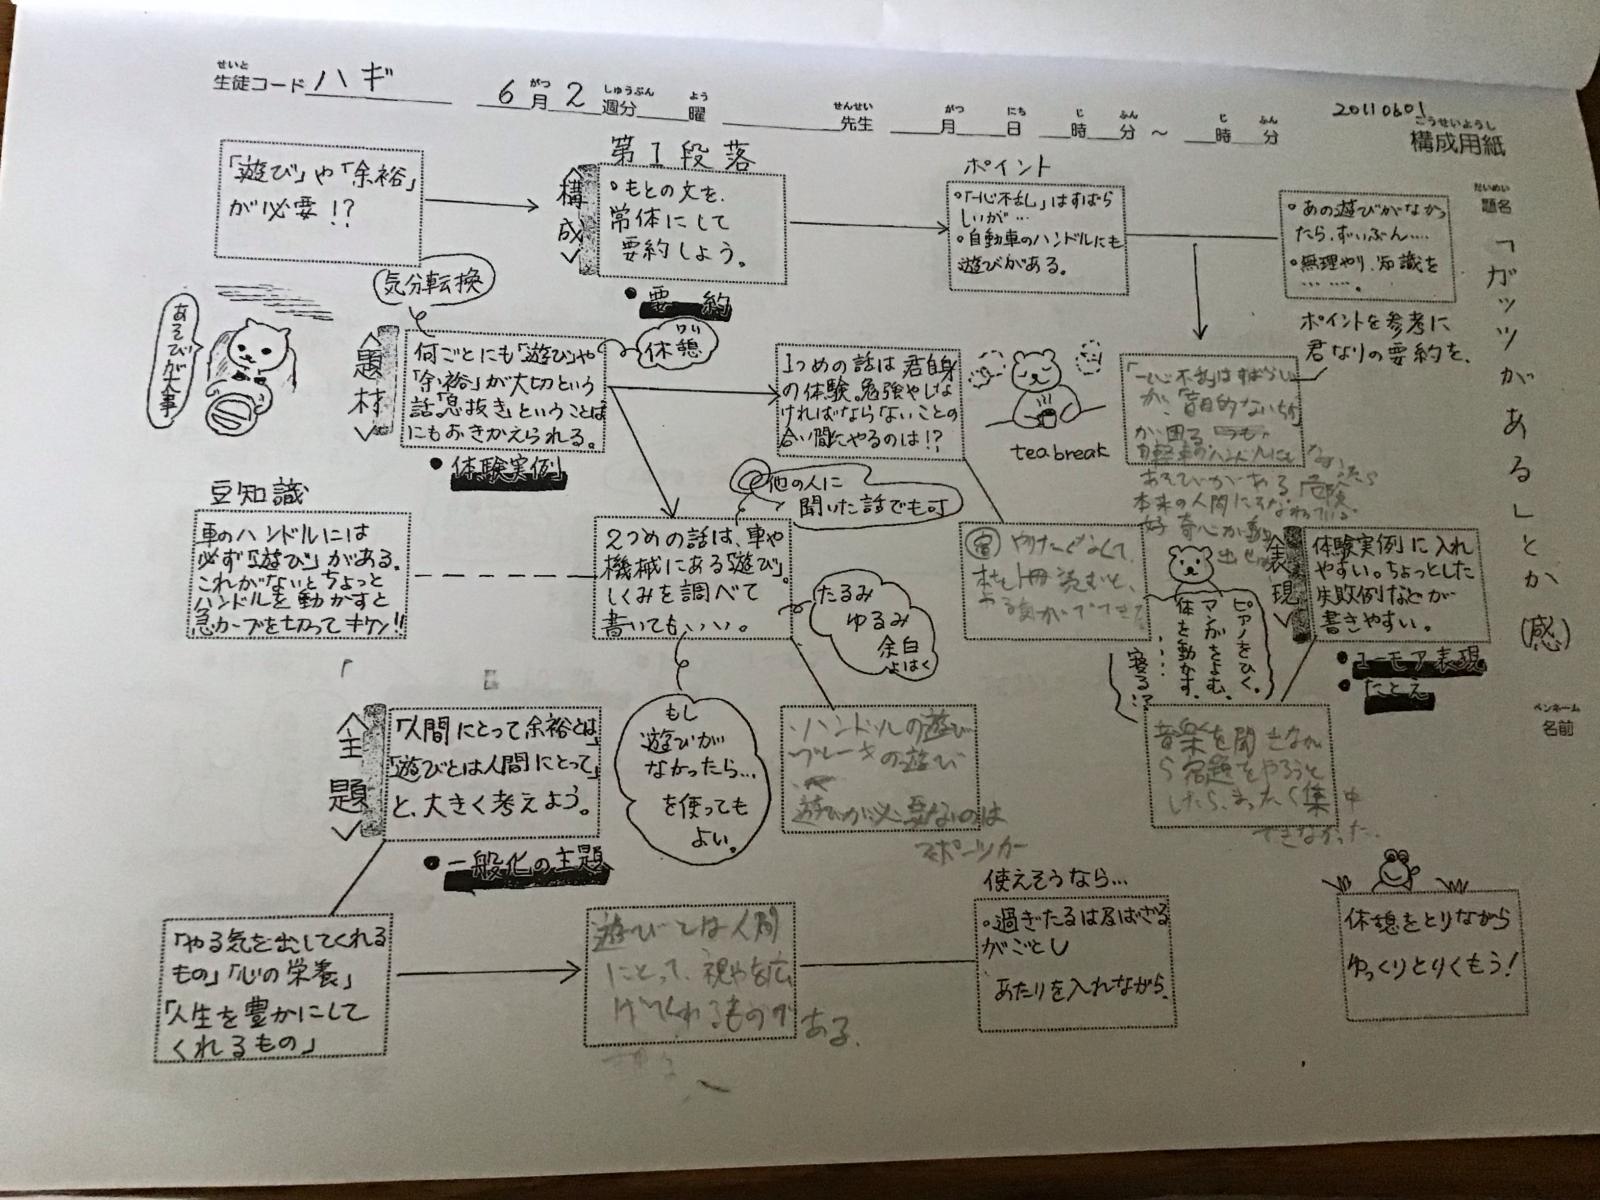 せいと
生徒コード ハギ
6月2週分 曜
がつ しゅうぶん よう
せんせい がつ にち じ ふん じ ふん
先生 月 日 時 分 ～ 時 分
20110601
こうせいようし
構成用紙
だいめい
題名
「ガッツがある」とか(感)
ペンネーム
名前
「遊び」や「余裕」
が必要!?
構成
第1段落
◦もとの文を、
常体にして
要約しよう。
●要約
ポイント
◦「一心不乱」はすばら
しいが…
◦自動車のハンドルにも
遊びがある。
◦あの遊びがなかっ
たら、ずいぶん……
◦無理やり、知識を
…………。
ポイントを参考に
君なりの要約を、
あそびが大事
気分転換
題材
何ごとにも「遊び」や
「余裕」が大切という
話「息抜き」ということば
にもおきかえられる。
●体験実例
休憩
1つめの話は君自身
の体験。勉強やしな
ければならないことの
合い間にやるのは!?
tea break
「一心不乱」はすばらしい
が、「盲目的ないちず」
が困る
自転車のハンドルにも
あそびがある
本来の人間にそなわっている
好奇心が
豆知識
車のハンドルには
必ず「遊び」がある。
これがないとちょっと
ハンドルを動かすと
急カーブを切ってキケン!!
他の人に
聞いた話でも可
2つめの話は、車や
機械にある「遊び」。
しくみを調べて
書いてもいい。
たるみ
ゆるみ
余白
よはく
やりたくなくて、
本を1冊読むと、
やる気がでてきた
ピアノをひく。
マンガをよむ。
体を動かす。
……
寝る!?
表現
体験実例に入れ
やすい。ちょっとした
失敗例などが
書きやすい。
●ユーモア表現
●たとえ
主題
「人間にとって余裕とは」
「遊びとは人間にとって」
と、大きく考えよう。
●一般化の主題
もし
遊びが
なかったら…
を使っても
よい。
・ハンドルの遊び
ブレーキの遊び
遊びが必要ないのは
スポーツカー
音楽を聞きなが
ら宿題をやろうと
したら、まったく集中
できなかった。
「やる気を出してくれる
もの」「心の栄養」
「人生を豊かにして
くれるもの」
遊びとは人間
にとって、視やを広
げてくれるものが
ある。
使えそうなら…
◦過ぎたるは及ばざる
がごとし
あたりを入れながら、
休憩をとりながら
ゆっくりとりくもう!